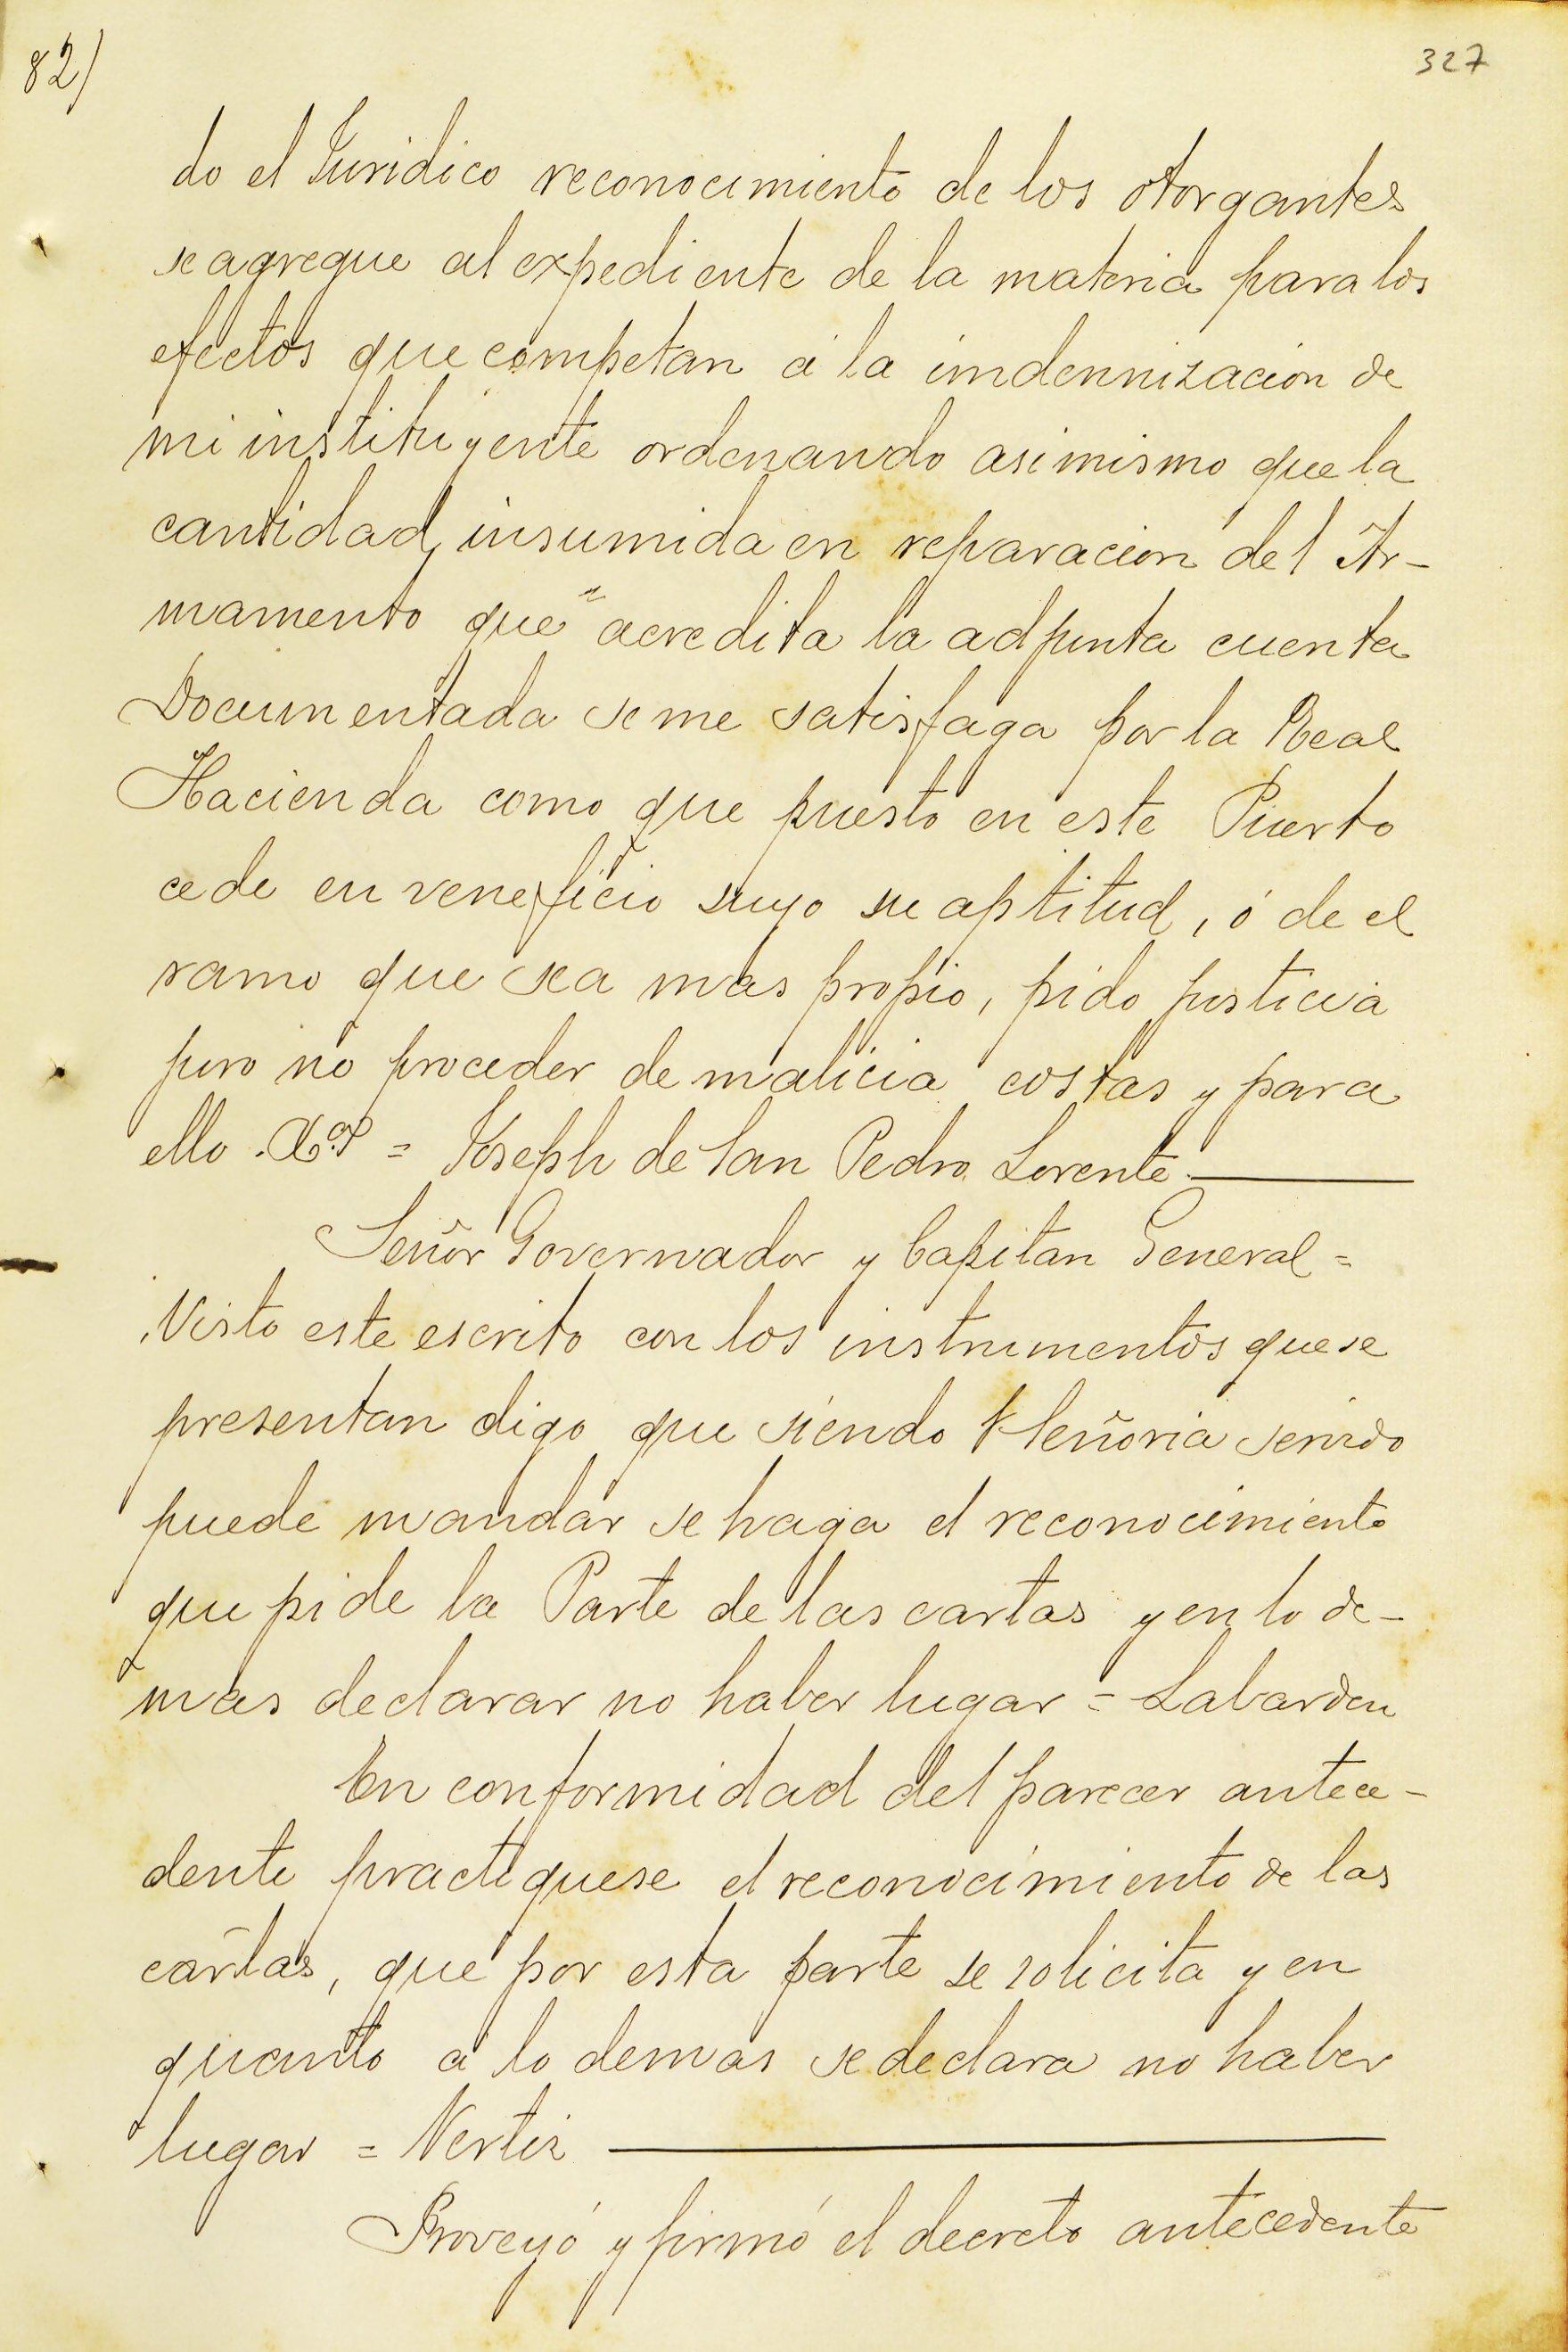 82)
327
do el Juridico reconocimiento de los otorgantes
se agregue al expediente de la materia para los
efectos que competan á la indennización de
mi instituyente ordenando asimismo que la
cantidad, insumida en reparacion del Ar-
mamento que acredita la adjunta cuenta
Documentada se me satisfaga por la Real
Hacienda como que puesto en este Puerto
cede en veneficio suyo su aptitud, ó de el
ramo que sea mas propio, pido justicia
juro no proceder de malicia costas y para
ello = Joseph de San Pedro Lorente
Señor Governador y Capitan General =
Visto este escrito con los instrumentos que se
presentan digo que siendo Señoria servido
puede mandar se haga el reconocimiento
que pide la Parte de las cartas y en lo de-
mas declarar no haber lugar = Labarden
En conformidad del parecer antece-
dente practiquese el reconocimiento de las
cartas, que por esta parte se solicita y en
quanto á lo demas se declara no haber
lugar = Vertiz
Proveyó y firmó el decreto antecedente